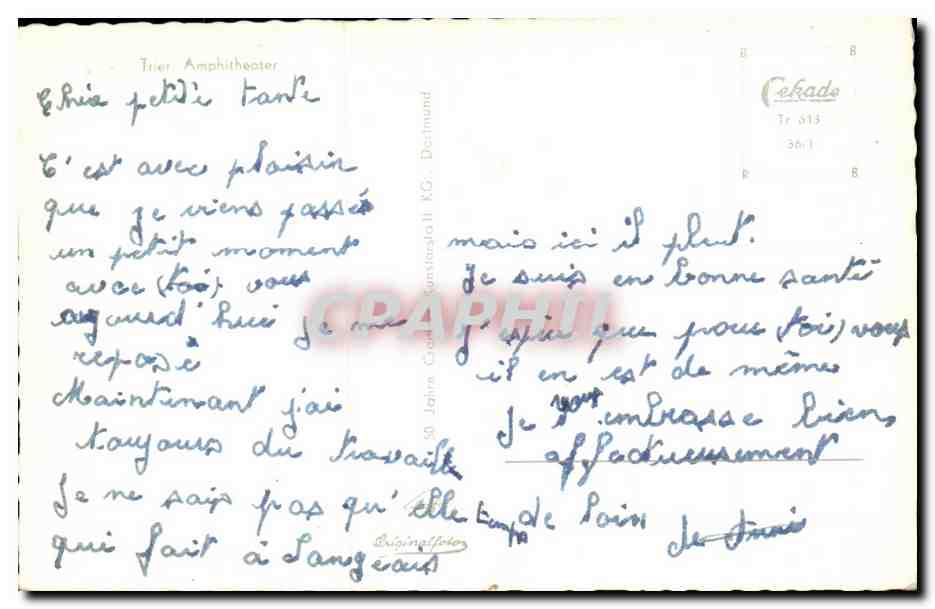 Trier Amphitheater
Chèr petite tante
C'est avec plaisir
que je viens passé
un petit moment
avec (toi) vous
aujourd'hui je me
reposé
Maintenant j'ai
toujours du travaill
Je ne sais pas qu'elle temps
qui fait à Langeais
mais ici il pleut.
Je suis en bonne santé
J'espèr que pour (toi) vous
il en est de même
Je vous embrasse bien
affectueusement
de loin
50 Jahre Kunstanstalt KG., Dortmund
Originalfoto
Cekade
Tr 313
CPAPHIL